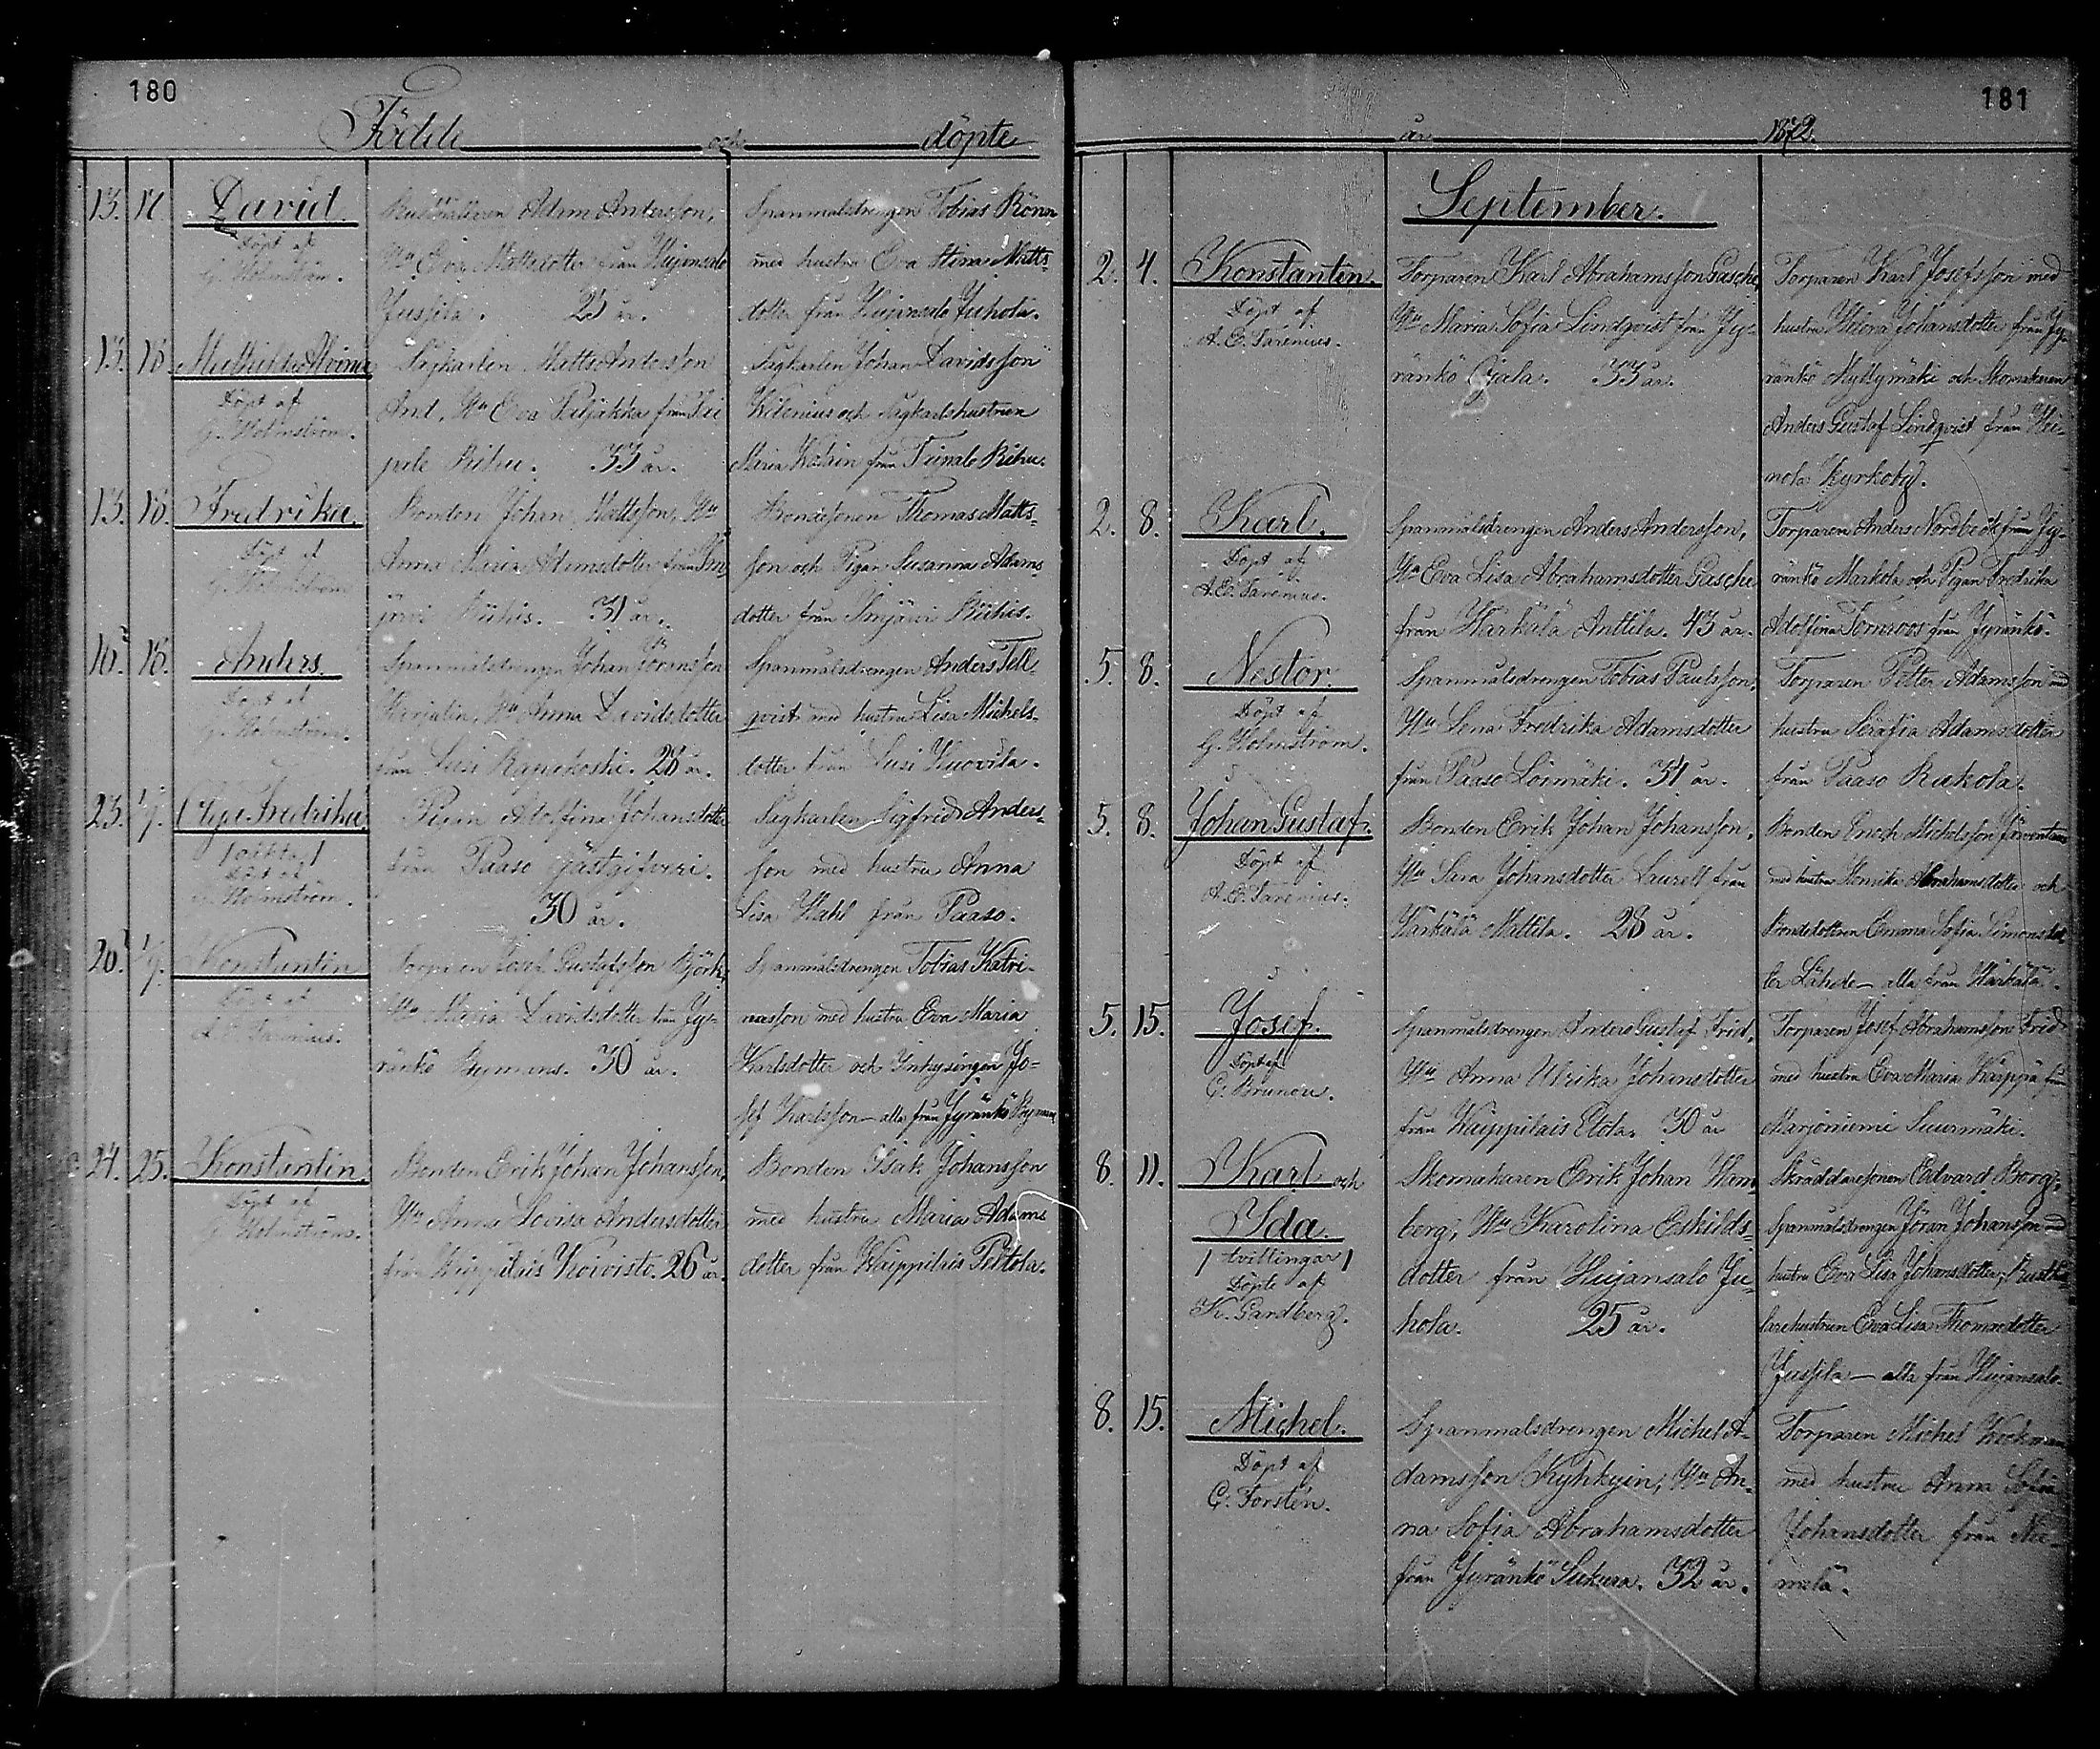 180
Födde och döpte
13. 17. David.
Döpt af
G. Holmström.
Rusthållaren Adam Andersson,
Hu Eva Mattsdotter från Hujansalo
Jussila. 25 år.
Spanmålsdrengen Tobias Rönn
med hustru Eva Stina Matts-
dotter från Hujansalo Juhola.
13. 18. Mathilda Alvina
Döpt af
G. Holmström.
Sågkarlen Matts Andersson
Hu Eva Paljakka från
Rihu. 33 år.
Sågkarlen Johan Davidsson
Wilenius och Sågkarlshustrun
Maria från Rihu.
13. 18. Fredrika.
Döpt af
G. Holmström
Bonden Johan Mattsson, Hu
Anna Maria Adamsdotter från Im-
järvi Riihis. 31 år.
Bondesonen Thomas Matts-
son och Pigan Susanna Adams-
dotter från Imjärvi Riihis.
16. 18. Anders.
Döpt af
G. Holmström.
Spanmålsdrengen Johan Göransson
Hu Anna Davidsdotter
från Lusi 28 år.
Spanmålsdrengen Anders Tell-
qvist med hustru Lisa Michels-
dotter från Lusi Kuorila.
23. 1/9. Olga Fredrika
/ oäkta /
Döpt af
G. Holmström.
Pigan Adolfina Johansdotter
från Paaso gästgifveri.
30 år.
Sågkarlen Sigfrid Anders-
son med hustru Anna
Lisa Stahl från Paaso.
20. 1/9. Konstantin
Döpt af
A. E. Tarenius.
Torparen Josef Gustafsson Björk,
Hu Maria Davidsdotter från Jy-
ränkö 30 år.
Spanmålsdrengen Tobias Katri-
nasson med hustru Eva Maria
Karlsdotter och Ynkysingen Jo-
sef Karlsson – alla från Jyränkö
24. 25. Konstantin.
Döpt af
G. Holmström.
Bonden Erik Johan Johansson,
Hu Anna Lovisa Andersdotter
från Waippilais Koivisto. 26 år.
Bonden Isak Johansson
med hustru Maria Adams
dotter från Waippilais Peltola.
181
år 1872.
September.
2. 4. Konstantin.
Döpt af
A. E. Tarenius.
Torparen Karl Abrahamsson Gasche,
Hu Maria Sofia Lindqvist från Jy-
ränkö Ojala. 33 år.
Torparen Karl Josefsson med
hustru Helena Johansdotter från Jy-
ränkö Myllymäki och Skomakaren
Anders Gustaf Lindqvist från Hei-
nola Kyrkoby.
2. 8. Karl.
Döpt af
A. E. Tarenius.
Spanmålsdrengen Anders Andersson,
Hu Eva Lisa Abrahamsdotter Gasche
från Härkälä Anttila. 43 år.
Torparen Anders Nordbeck från Jy-
ränkö Markola och Pigan Fredrika
Adolfina Tornroos från Jyränkö.
5. 8. Nestor.
Döpt af
G. Holmström.
Spanmålsdrengen Tobias Paulsson,
Hu Lena Fredrika Adamsdotter
från Paaso Loimäki. 31 år.
Torparen Petter Adamsson med
hustru Serafia Adamsdotter
från Paaso Rukola.
5. 8. Johan Gustaf.
Döpt af
A. E. Tarenius.
Bonden Erik Johan Johansson,
Hu Sara Johansdotter Laurell från
Härkälä Mattila. 28 år.
Bonden Enoch Michelsson
med hustru Henrika Abrahamsdotter och
Bondedottren Emma Sofia Simonsdot-
ter Lähde – alla från Härkälä.
5. 15. Josef.
Döpt af
C. Brunou.
Spanmålsdrengen Anders Gustaf Frid,
Hu Anna Ulrika Johansdotter
från Waippilais Elola. 30 år
Torparen Josef Abrahamsson Frid
med hustru Eva Maria från
Marjoniemi Suurmäki.
8. 11. Karl och
Ida.
/ tvillingar /
Döpte af
K. Gardberg.
Skomakaren Erik Johan Ham-
berg, Hu Karolina Eskilds-
dotter från Hujansalo Ju-
hola. 25 år.
Skräddaresonen Edvard Borg,
Spanmålsdrengen Jöran Johansson med
hustru Eva Lisa Johansdotter, Rusthål-
larehustrun Eva Lisa Thomasdotter
Jussila – alla från Hujansalo.
8. 15. Michel.
Döpt af
C. Forstén.
Spanmålsdrengen Michel A-
damsson Kyhkyin, Hu An-
na Sofia Abrahamsdotter
från Jyränkö Sukura. 32 år.
Torparen Michel
med hustru Anna Sofia
Johansdotter från Nie-
melä.